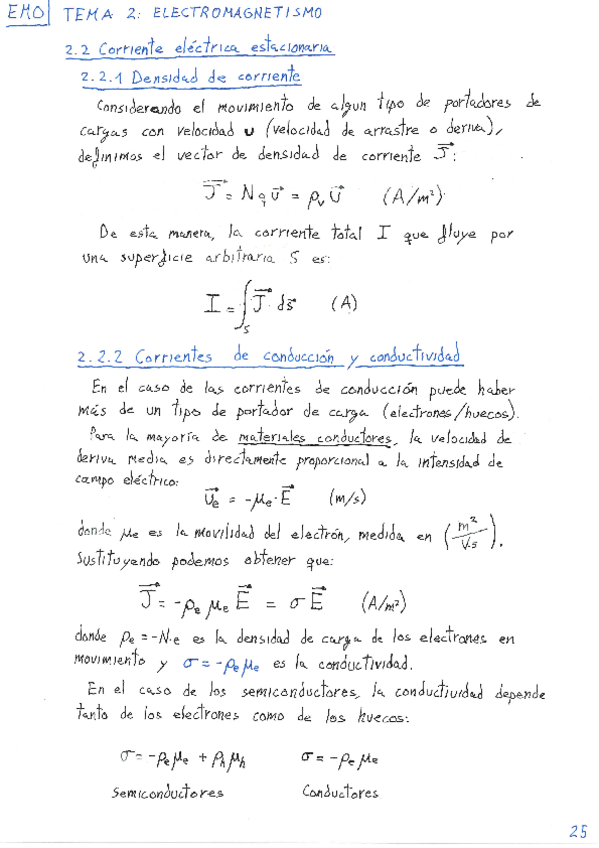 EMO TEMA 2: ELECTROMAGNETISMO
2.2 Corriente eléctrica estacionaria
2.2.1 Densidad de corriente
Considerando el movimiento de algun tipo de portadores de
cargas con velocidad u (velocidad de arrastre o deriva),
definimos el vector de densidad de corriente J⃗:
J⃗ = N q u⃗ = ρᵥ u⃗ (A/m²)
De esta manera, la corriente total I que fluye por
una superficie arbitraria S es:
I = ∫_S J⃗ ds⃗ (A)
2.2.2 Corrientes de conducción y conductividad
En el caso de las corrientes de conducción puede haber
más de un tipo de portador de carga (electrones/huecos).
Para la mayoría de materiales conductores, la velocidad de
deriva media es directamente proporcional a la intensidad de
campo eléctrico:
u⃗e = -μe · E⃗ (m/s)
donde μe es la movilidad del electrón, medida en (m²/V.s).
Sustituyendo podemos obtener que:
J⃗ = -ρe μe E⃗ = σ E⃗ (A/m²)
donde ρe = -N·e es la densidad de carga de los electrones en
movimiento y σ = -ρe μe es la conductividad.
En el caso de los semiconductores, la conductividad depende
tanto de los electrones como de los huecos:
σ = -ρe μe + ρh μh σ = -ρe μe
Semiconductores Conductores
25